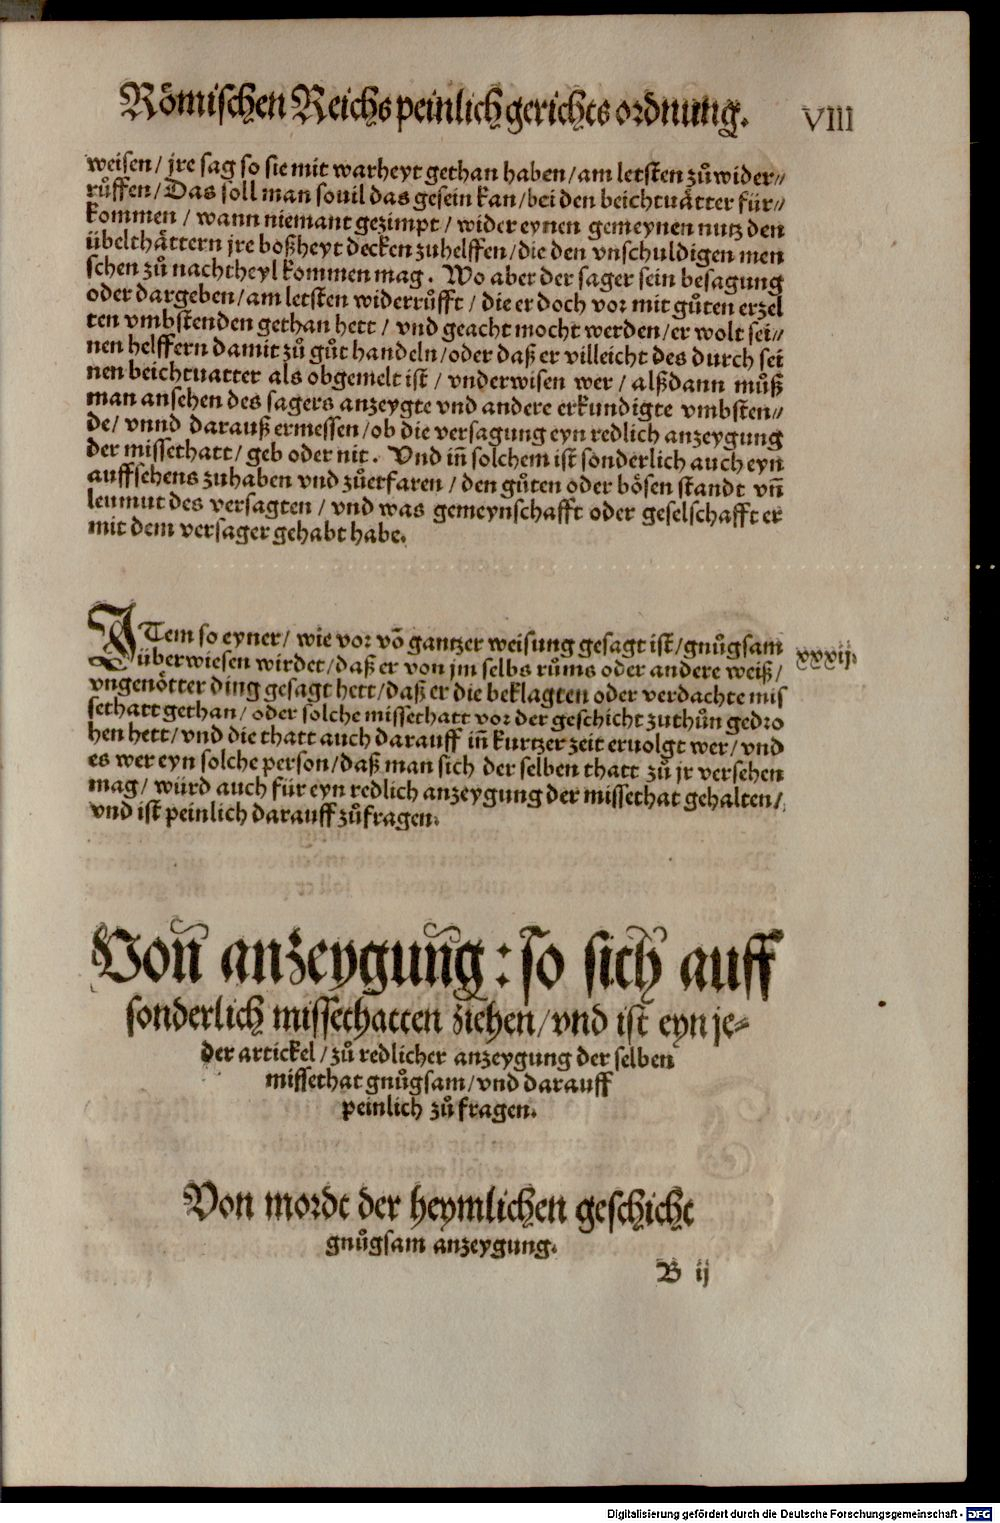 Römischen Reichs peinlich gerichts ordnung. VIII
weisen / jre sag so sie mit warheyt gethan haben / am letsten zůwider⸗
růffen / Das soll man souil das gesein kan / bei den beichtuätter für⸗
kommen / wann niemant gezimpt / wider eynen gemeynen nutz den
übelthättern jre boßheyt decken zuhelffen / die den vnschuldigen men
schen zů nachtheyl kommen mag. Wo aber der sager sein besagung
oder dargeben / am letsten widerrůfft / die er doch vor mit gůten erzel
ten vmbstenden gethan hett / vnd geacht mocht werden / er wolt sei⸗
nen helffern damit zů gůt handeln / oder daß er villeicht des durch sei
nen beichtuatter als obgemelt ist / vnderwisen wer / alßdann můß
man ansehen des sagers anzeygte vnd andere erkundigte vmbsten⸗
de / vnnd darauß ermessen / ob die versagung eyn redlich anzeygung
der missethatt / geb oder nit. Vnd in̄ solchem ist sonderlich auch eyn
auffsehens zuhaben vnd zůerfaren / den gůten oder bösen standt vn̄
leumut des versagten / vnd was gemeynschafft oder geselschafft er
mit dem versager gehabt habe.
ITem so eyner / wie vor vō gantzer weisung gesagt ist / gnůgsam xxxij.
überwiesen wirdet / daß er von jm selbs růms oder andere weiß /
vngenötter ding gesagt hett / daß er die beklagten oder verdachte mis
sethatt gethan / oder solche missethatt vor der geschicht zuthůn gedro
hen hett / vnd die thatt auch darauff in̄ kurtzer zeit eruolgt wer / vnd
es wer eyn solche person / daß man sich der selben thatt zů jr versehen
mag / würd auch für eyn redlich anzeygung der missethat gehalten /
vnd ist peinlich darauff zůfragen.
Von anzeygung : so sich auff
sonderlich missethatten ziehen / vnd ist eyn je⸗
der artickel / zů redlicher anzeygung der selben
missethat gnůgsam / vnd darauff
peinlich zů fragen.
Von mordt der heymlichen geschicht
gnůgsam anzeygung.
B ij
Digitalisierung gefördert durch die Deutsche Forschungsgemeinschaft - DFG